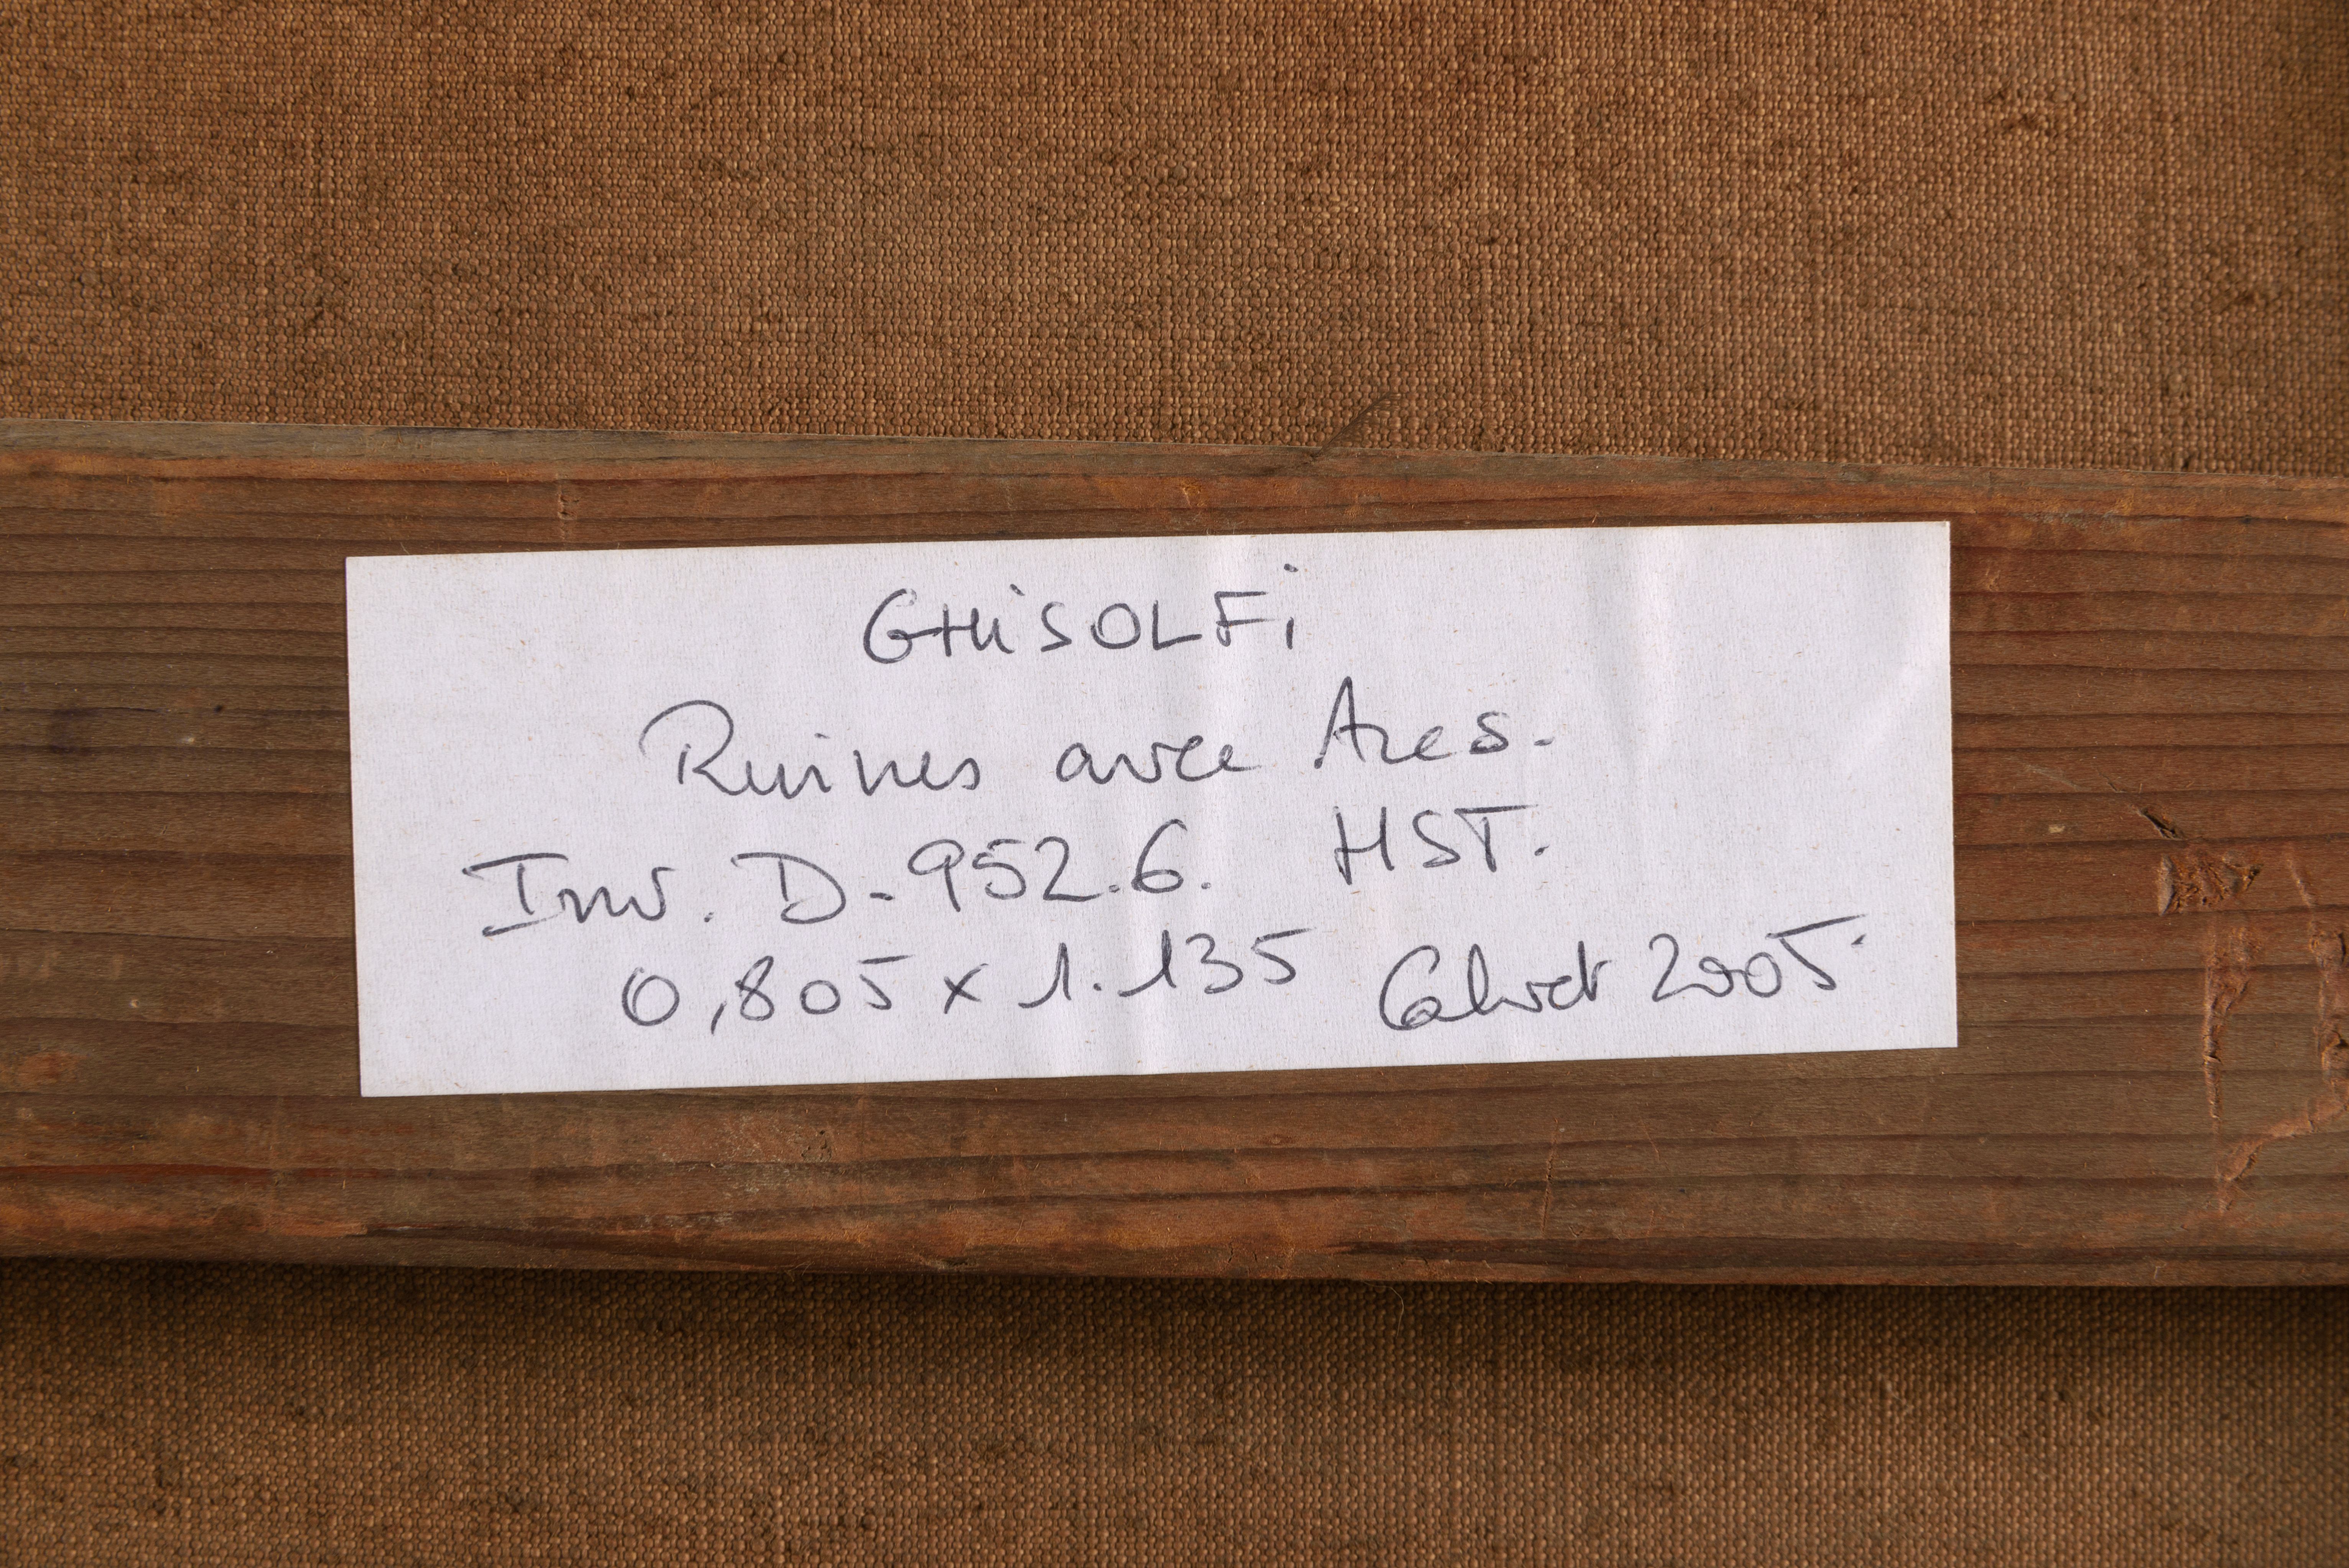 GHiSOLFi
Ruines avec Arcs.
Inv. D-952.6. HST.
0,805 x 1.135 Calvet 2005.